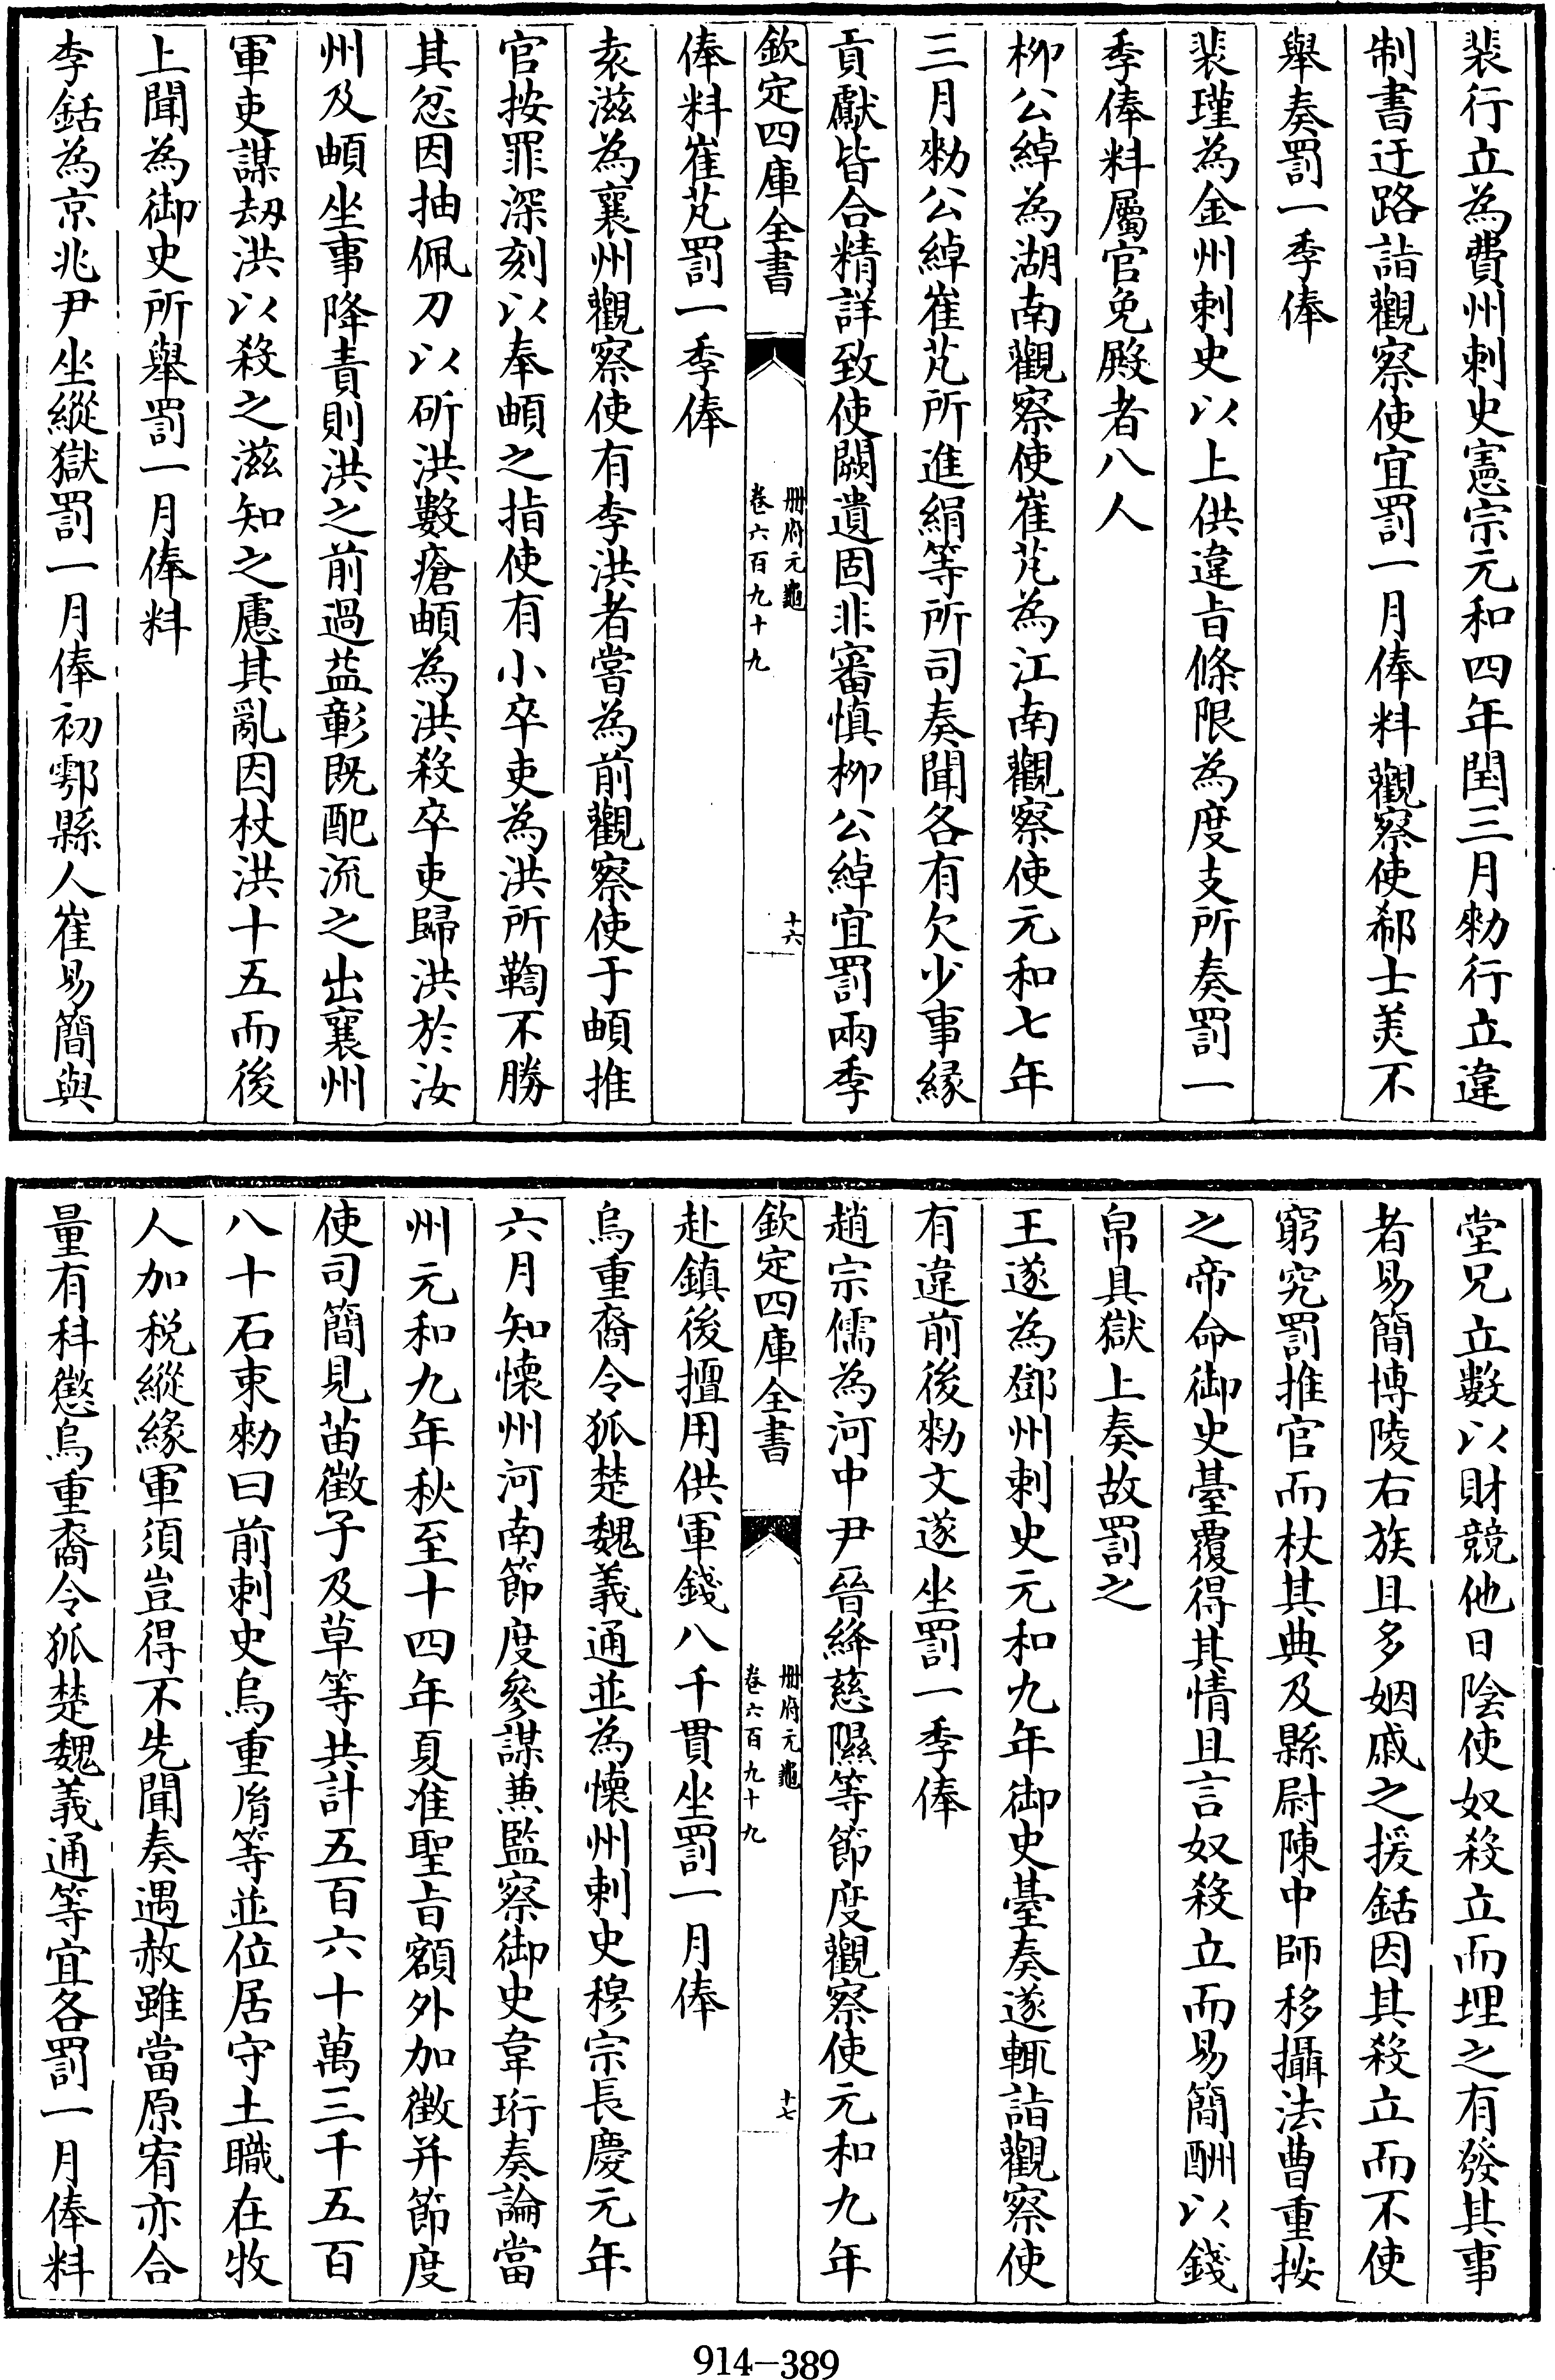 裴行立為費州刺史憲宗元和四年閏三月勑行立違
制書迂路詣觀察使宜罰一月俸料觀察使郗士美不
舉奏罰一季俸
裴瑾為金州刺史以上供違㫖條限為度支所奏罰一
季俸料屬官免殿者八人
柳公綽為湖南觀察使崔芃為江南觀察使元和七年
三月勑公綽崔芃所進絹等所司奏聞各有欠少事緣
貢獻皆合精詳致使闕遺固非審慎柳公綽宜罰兩季
欽定四庫全書
冊府元龜
卷六百九十九
十六
俸料崔芃罰一季俸
袁滋為襄州觀察使有李洪者嘗為前觀察使于頔推
官按罪深刻以奉頔之指使有小卒吏為洪所鞫不勝
其忿因抽佩刀以斫洪數瘡頔為洪殺卒吏歸洪於汝
州及頔坐事降責則洪之前過益彰既配流之出襄州
軍吏謀刼洪以殺之滋知之慮其亂因杖洪十五而後
上聞為御史所舉罰一月俸料
李銛為京兆尹坐縱獄罰一月俸初鄠縣人崔易簡與
堂兄立數以財競他日陰使奴殺立而埋之有發其事
者易簡博陵右族且多姻戚之援銛因其殺立而不使
窮究罰推官而杖其典及縣尉陳中師移攝法曹重按
之帝命御史臺覆得其情且言奴殺立而易簡酬以錢
帛具獄上奏故罰之
王遂為鄧州刺史元和九年御史臺奏遂輒詣觀察使
有違前後勑文遂坐罰一季俸
趙宗儒為河中尹晉絳慈隰等節度觀察使元和九年
欽定四庫全書
冊府元龜
卷六百九十九
十七
赴鎮後擅用供軍錢八千貫坐罰一月俸
烏重裔令狐楚魏義通並為懷州刺史穆宗長慶元年
六月知懷州河南節度參謀兼監察御史韋珩奏論當
州元和九年秋至十四年夏准聖㫖額外加徵并節度
使司簡見苗徵子及草等共計五百六十萬三千五百
八十石束勑曰前刺史烏重胤等並位居守土職在牧
人加稅縱緣軍須豈得不先聞奏遇赦雖當原宥亦合
量有科懲烏重裔令狐楚魏義通等宜各罰一月俸料
914-389